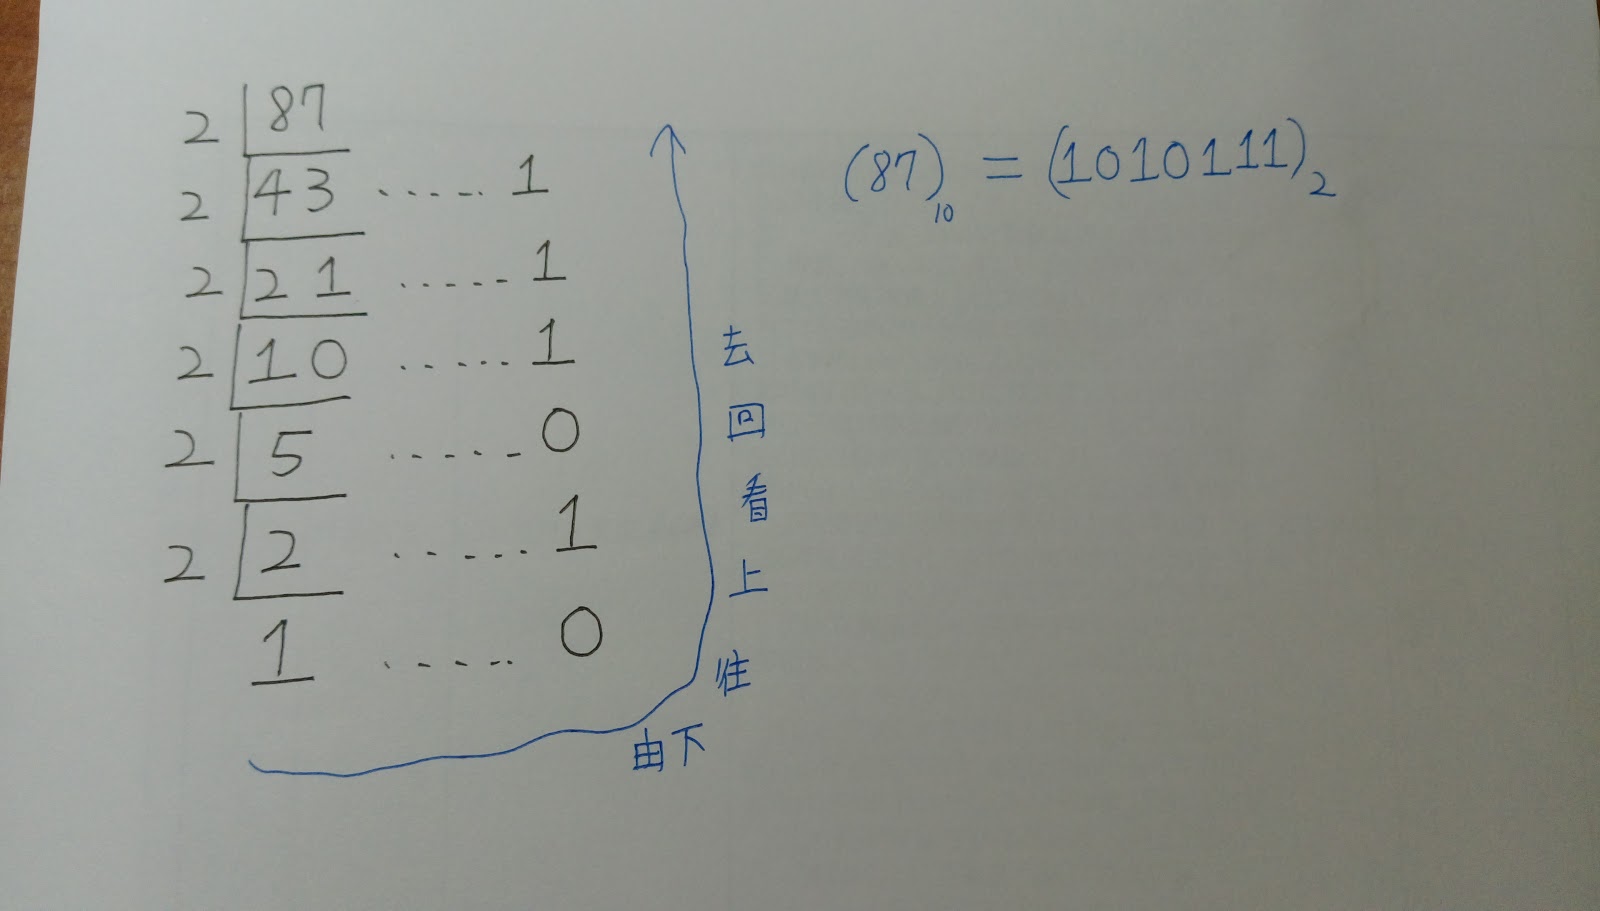 2 87
2 43 ..... 1
2 21 ..... 1
2 10 ..... 1
2 5 ..... 0
2 2 ..... 1
1 ..... 0
由下
往上看回去
(87)10 = (1010111)2